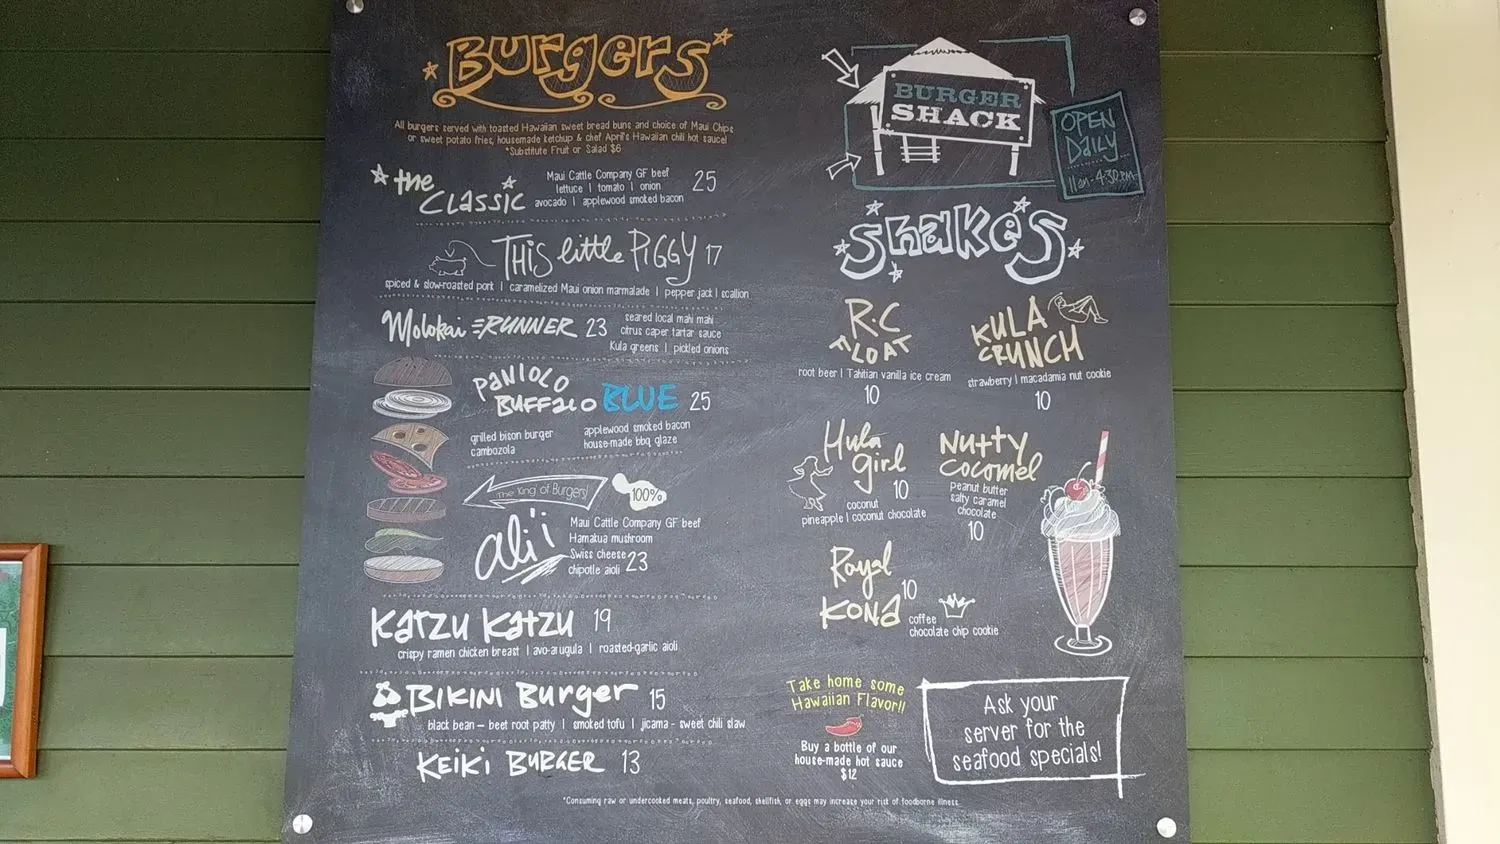 Burgers
All burgers served with toasted Hawaiian sweet bread buns and choice of Maui Chips
or sweet potato fries, housemade ketchup & chef April's Hawaiian chili hot sauce!
*Substitute Fruit or Salad $6
the Classic
Maui Cattle Company GF beef
lettuce | tomato | onion
avocado | applewood smoked bacon
25
THis little PiGGY 17
spiced & slow-roasted pork | caramelized Maui onion marmalade | pepper jack | scallion
Molokai RUNNER 23
seared local mahi mahi
citrus caper tartar sauce
Kula greens | pickled onions
PANIOLO
BUFFALO BLUE 25
grilled bison burger
cambozola
applewood smoked bacon
house-made bbq glaze
The King of Burgers!
100%
ali'i
Maui Cattle Company GF beef
Hamakua mushroom
Swiss cheese
chipotle aioli 23
Katzu Katzu 19
crispy ramen chicken breast | avo-arugula | roasted-garlic aioli
BIKINI Burger 15
black bean – beet root patty | smoked tofu | jicama - sweet chili slaw
KEiKi BURGER 13
BURGER
SHACK
OPEN
DAILY
11am-4:30pm
Shake's
R.C
FLOAT
root beer | Tahitian vanilla ice cream
10
KULA
CRUNCH
strawberry | macadamia nut cookie
10
Hula
girl
10
coconut
pineapple | coconut chocolate
Nutty
Cocomel
peanut butter
salty caramel
chocolate
10
Royal
KONA
10
coffee
chocolate chip cookie
Take home some
Hawaiian Flavor!!
Buy a bottle of our
house-made hot sauce
$12
Ask your
server for the
seafood specials!
*Consuming raw or undercooked meats, poultry, seafood, shellfish, or eggs may increase your risk of foodborne illness.